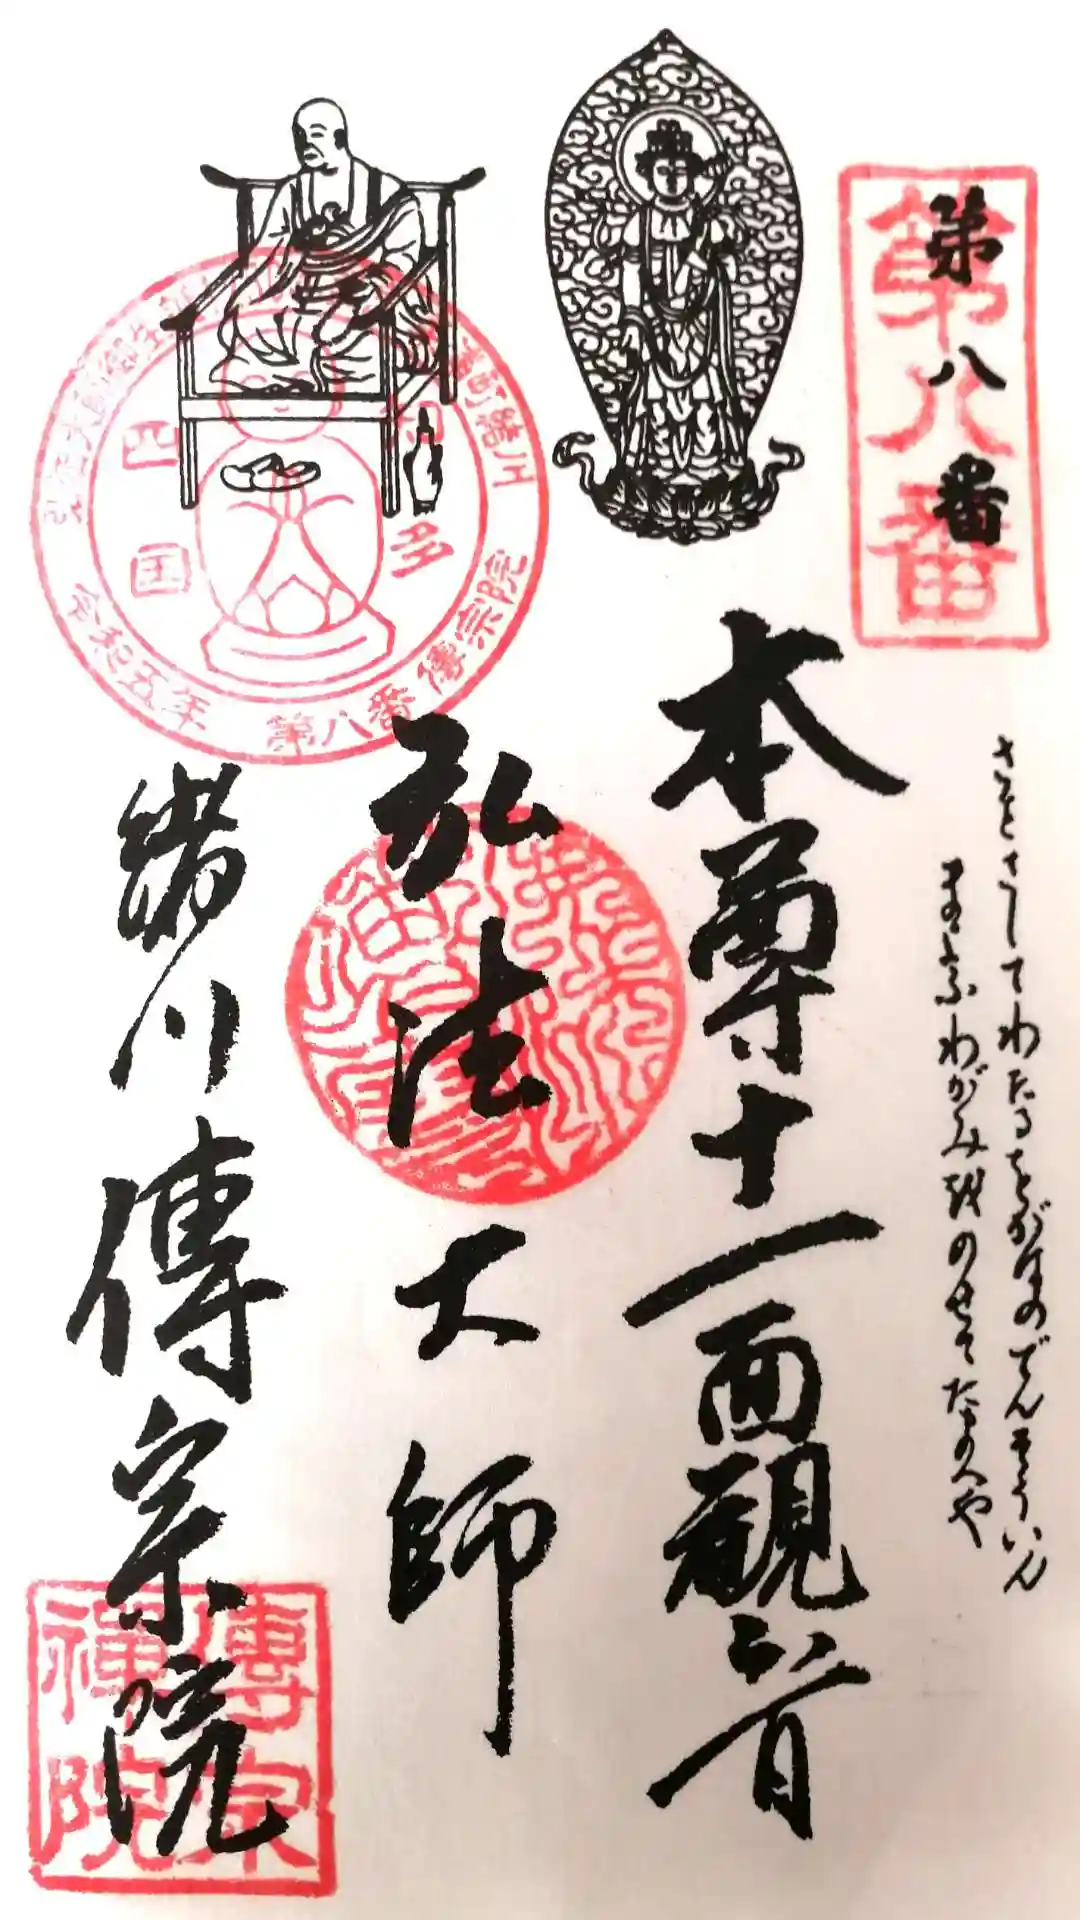 第八番
第八番
さとさしてわたるをがはのでんそういん
まふわがみ我のせてたまへや
本尊十一面観音
弘法大師
緒川傳宗院
四国
知多
令和五年 第八番 傳宗院
傳宗
禅院